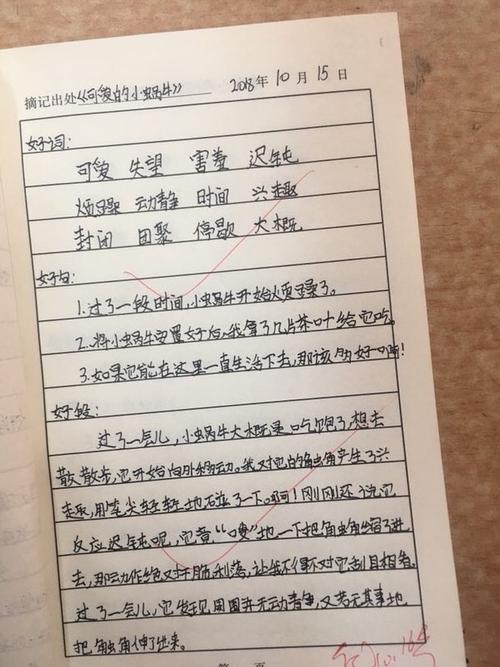 摘记出处《可爱的小蜗牛》 2018年10月15日
好词:
可爱 失望 害羞 迟钝
烦躁 动静 时间 兴趣
封闭 团聚 停歇 大概
好句:
1.过了一段时间,小蜗牛开始烦躁了。
2.将小蜗牛安置好后,我拿了几片茶叶给它吃。
3.如果它能在这里一直生活下去,那该多好啊!
好段:
过了一会儿,小蜗牛大概是吃饱了,想去
散散步,它开始向外移动。我对它的触角产生了兴
趣,用笔尖轻轻地碰了一下。呵!刚刚还说它
反应迟钝呢,它竟“嗖”地一下把触角缩了进
去,那动作绝对干脆利落,让我不得不对它刮目相看。
过了一会儿,它发现周围并无动静,又若无其事地
把触角伸了出来。
第 页
10.16